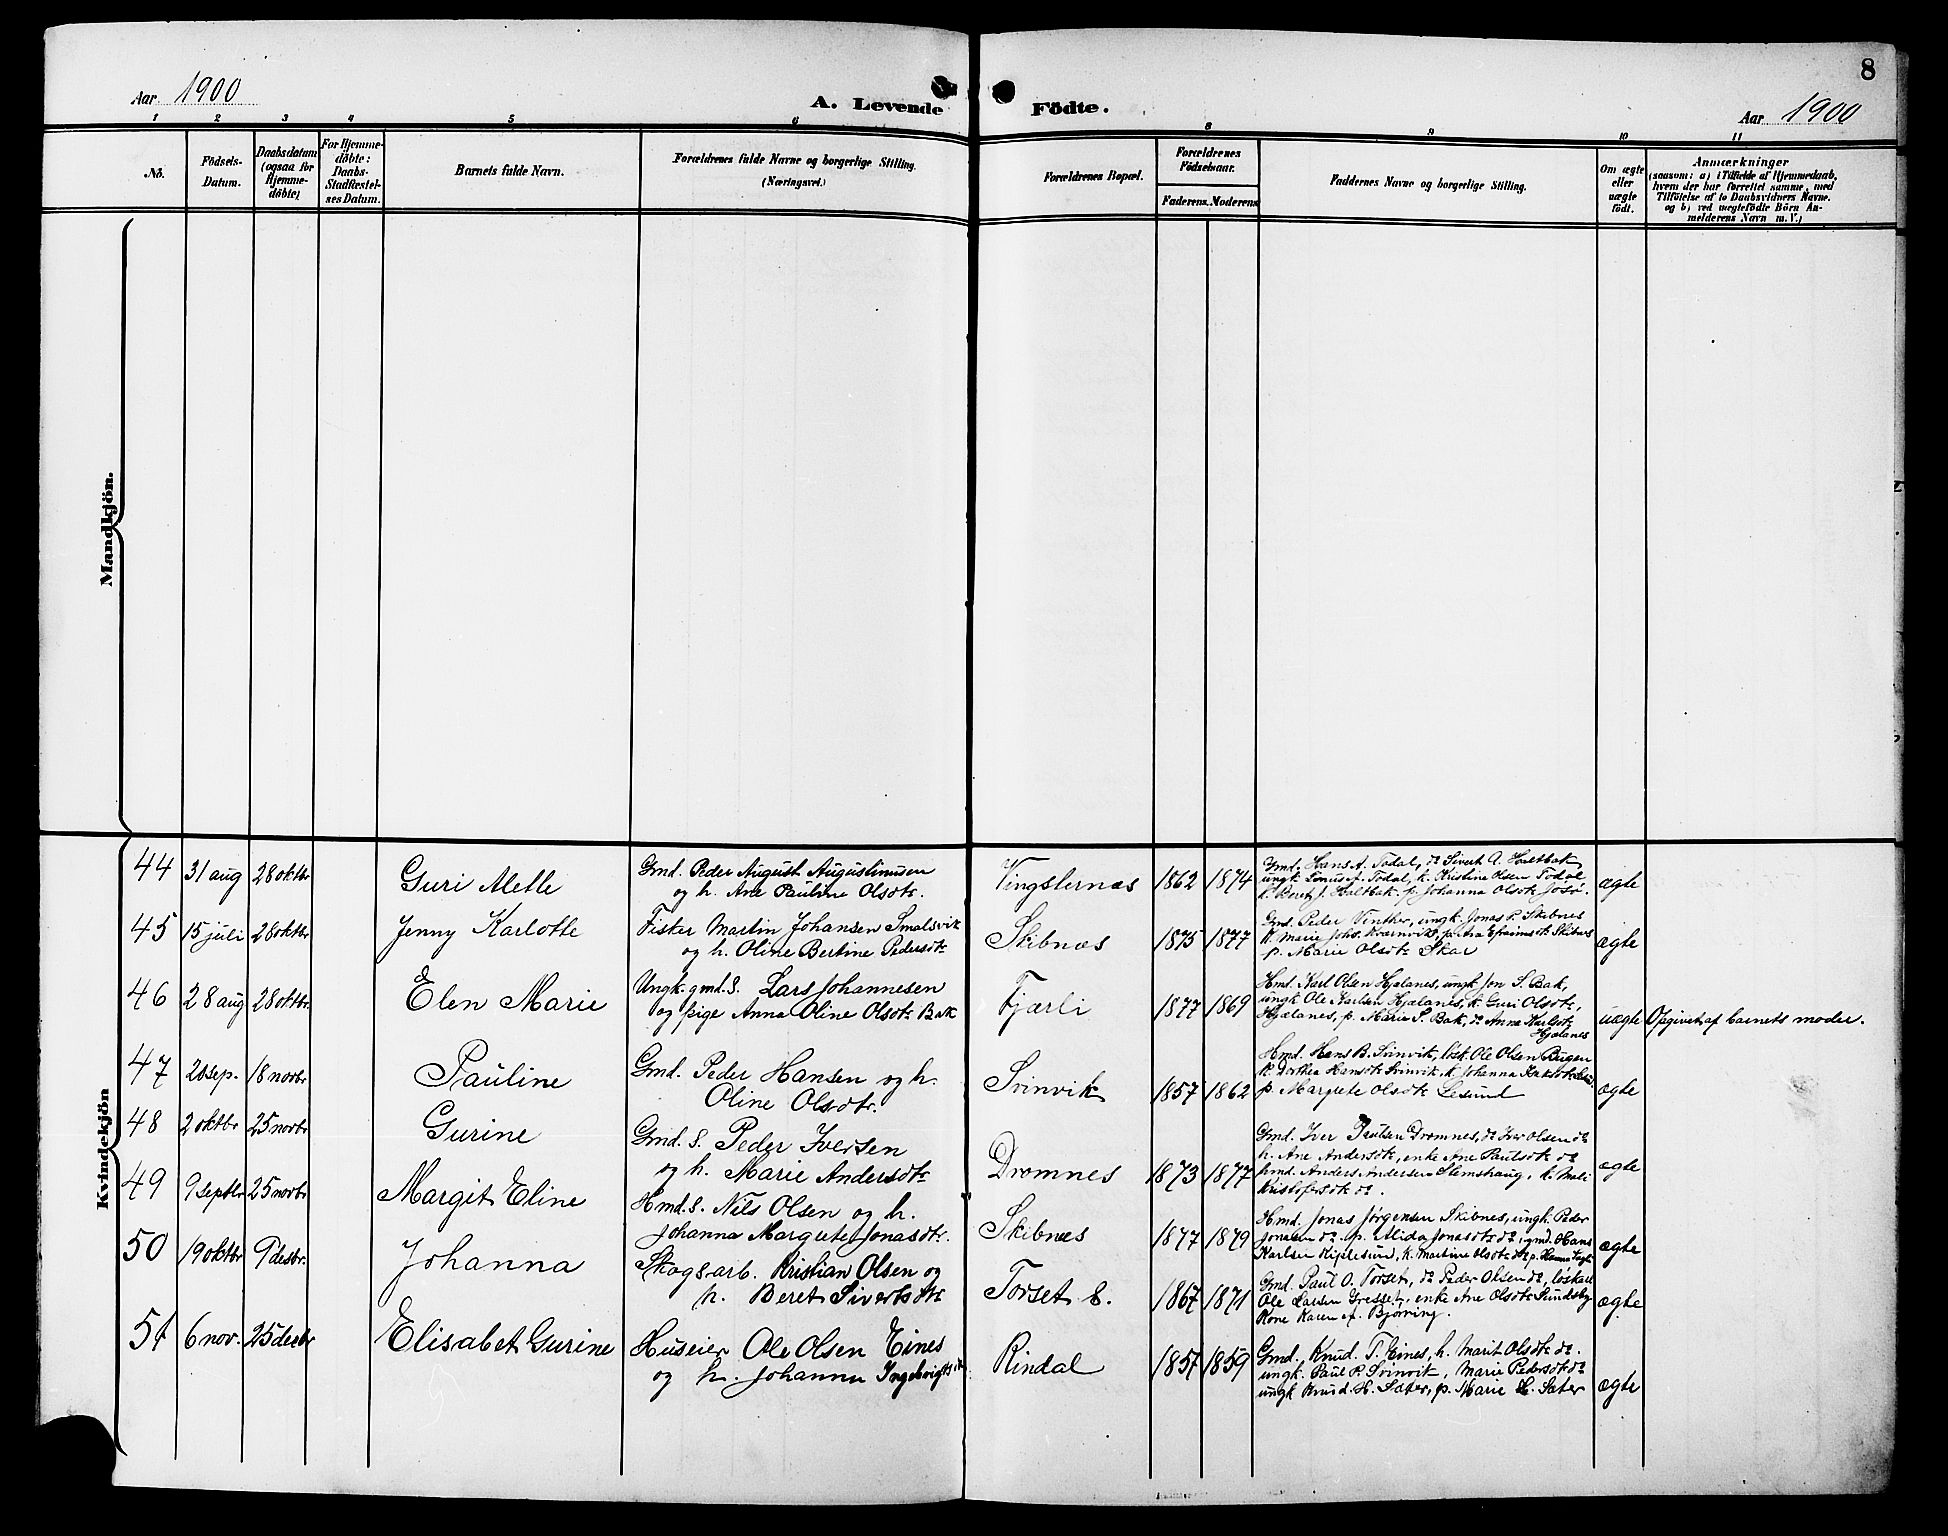 8
Aar 1900
A. Levende Födte.
Aar 1900
1 2 3 4 5 6 8 9 10 11
No.
Födsels-
Datum.
Daabsdatum
(ogsaa for
Hjemme-
döbte)
For Hjemme-
döbte:
Daabs-
Stadfæstel-
ses Datum.
Barnets fulde Navn.
Forældrenes fulde Navne og borgerlige Stilling.
(Næringsvei.)
Forældrenes Bopæl.
Forældrenes
Födselsaar.
Faderens. Moderens
Faddernes Navne og borgerlige Stilling.
Om ægte
eller
uægte
født.
Anmærkninger
(saasom: a) i Tilfælde af Hjemmedaab,
hvem der har forrettet samme, med
Tilföielse af to Daabsvidners Navne.
og b) ved uægtefödte Börn An-
melderens Navn m. V.)
Mandkjön.
Kvindekjön
44 31 aug 28 oktbr Guri Mette
Gmd. Peder August Augustinusen
og h. Ane Pauline Olsdtr.
Vingsternæs 1862 1874
Gmd. Hans A. Todal, do Sivert A. Haltbak
ungk. f. Todal, k. Kristine Olsen Todal
k. Beret J. Haltbak, p. Johanna Olsdtr
ægte
45 15 juli 28 oktbr Jenny Karlotte
Fisker Martin Johansen Smalsvik
og h. Oline Bertine Pedersdtr
Skibnæs 1875 1877
Gmd. Peder Vinther, ungk. Jonas P. Skibnes
k. Marie Johs. Kværnvik, p. Ana Efraimsdtr Skibnes
p. Marie Olsdtr Skar
ægte
46 28 aug 28 oktbr Elen Marie
Ungk. gmd.s. Lars Johannesen
og pige Anna Oline Olsdtr Bak
Fjærli 1877 1869
Hmd. Karl Olsen Hjælanes, ungk. Jon S. Bak,
ungk. Ole Karlsen Hjælanes, k. Guri Olsdtr,
Hjælanes, p. Marie S. Bak, do Anna Karlsdtr
Hjælanes
uægte Opgivet af barnets moder.
47 2 sep. 18 novbr Pauline
Gmd. Peder Hansen og h.
Oline Olsdtr.
Svinvik 1857 1862
Hmd. Hans B. Svinvik, løsk. Ole Olsen Bugen
k. Dorthea Hansdtr Svinvik, k. Johanna
p. Margrete Olsdtr Lesund
ægte
48 2 oktbr 25 novbr Gurine
Gmd. s. Peder Iversen
og h. Marie Andersdtr
Dromnes 1873 1877
Gmd. Iver Paulsen Dromnes, do Iver Olsen do
h. Ane Andersdtr, enke Ane Paulsdtr do
hmd. Anders Andersen Slemshaug, k. Mali
Kristofersdtr do.
ægte
49 9 septbr 25 novbr Margit Eline
Hmd. s. Nils Olsen og h.
Johanna Margrete Jonasdtr.
Skibnæs 1877 1879
Hmd. Jonas Jørgensen Skibnes, ungk. Peder
Jonasen do. p. Alida Jonasdtr do, gmd. Hans
Karlsen, k. Martine Olsdtr do p. Hanna
ægte
50 19 oktbr 9 desbr. Johanna
Skogsarb. Kristian Olsen og
h. Beret Sivertsdtr
Torset s. 1867 1871
Gmd. Paul O. Torset, do Peder Olsen do, løskarl
Ole Larsen Gresset, enke Ane Olsdtr
Kone Karen Bjørring.
ægte
51 6 nov. 25 desbr Elisabet Gurine
Huseier Ole Olsen Eines
og h. Johanna Ingebrigtsdtr
Rindal 1857 1859
Gmd. Knud T. Eines, h. Marit Olsdtr do.
ungk. Paul P. Svinvik, Marie Pedersdtr do
ungk Knud H. Sæter, p. Marie L. Sæter
ægte